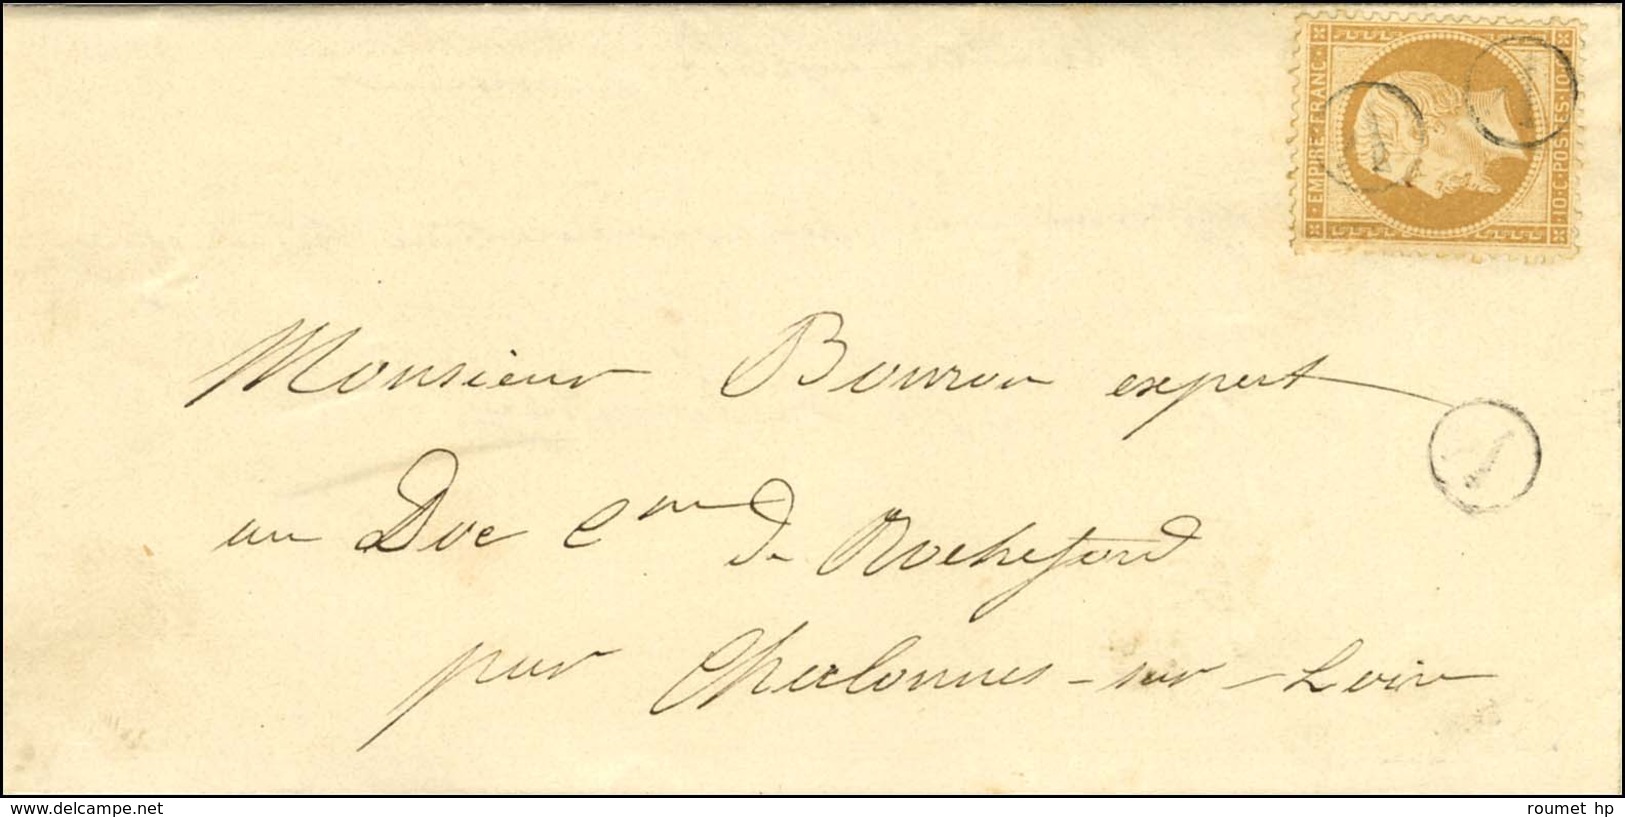 EMPIRE · FRANC ·
10 · C · POSTES · 10 · C
Monsieur Bourrou expert
au Doc Cne de Rochefort
par Chalonnes-sur-Loire
www.delcampe.net
roumet hp